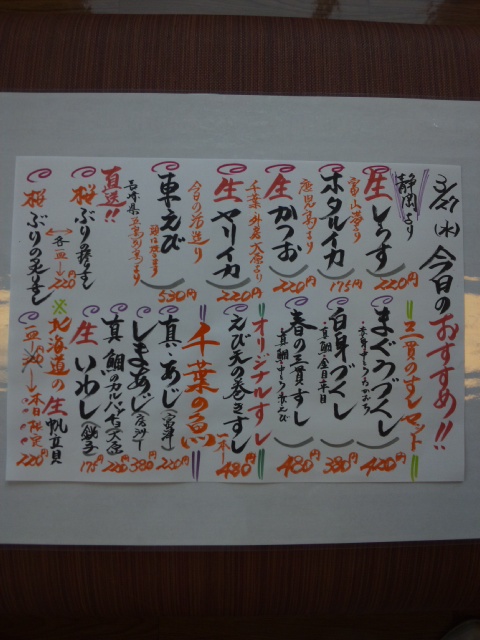 3/21(水)今日のおすすめ!!
静岡より
生しらす 220円
富山湾より
ホタルイカ 175円
鹿児島より
生かつお 220円
千葉外房大原より
生ヤリイカ 220円
今日の活造り
車えび 530円
頭は焼きます
直送!!
桜ぶりの
桜ぶりの炙りすし
各一皿→220円
三貫のすしマット
まぐろづくし 420円
白身づくし 380円
真鯛 金目平目
春の三貫すし 480円
オリジナルすし
えび天の巻きずし
一本→480円
千葉の魚
真あじ(富津) 220円
しまあじ 380円
真鯛のカルパッチョ 220円
生いわし(銚子) 175円
※北海道の生帆立貝
一皿→本日限定 220円